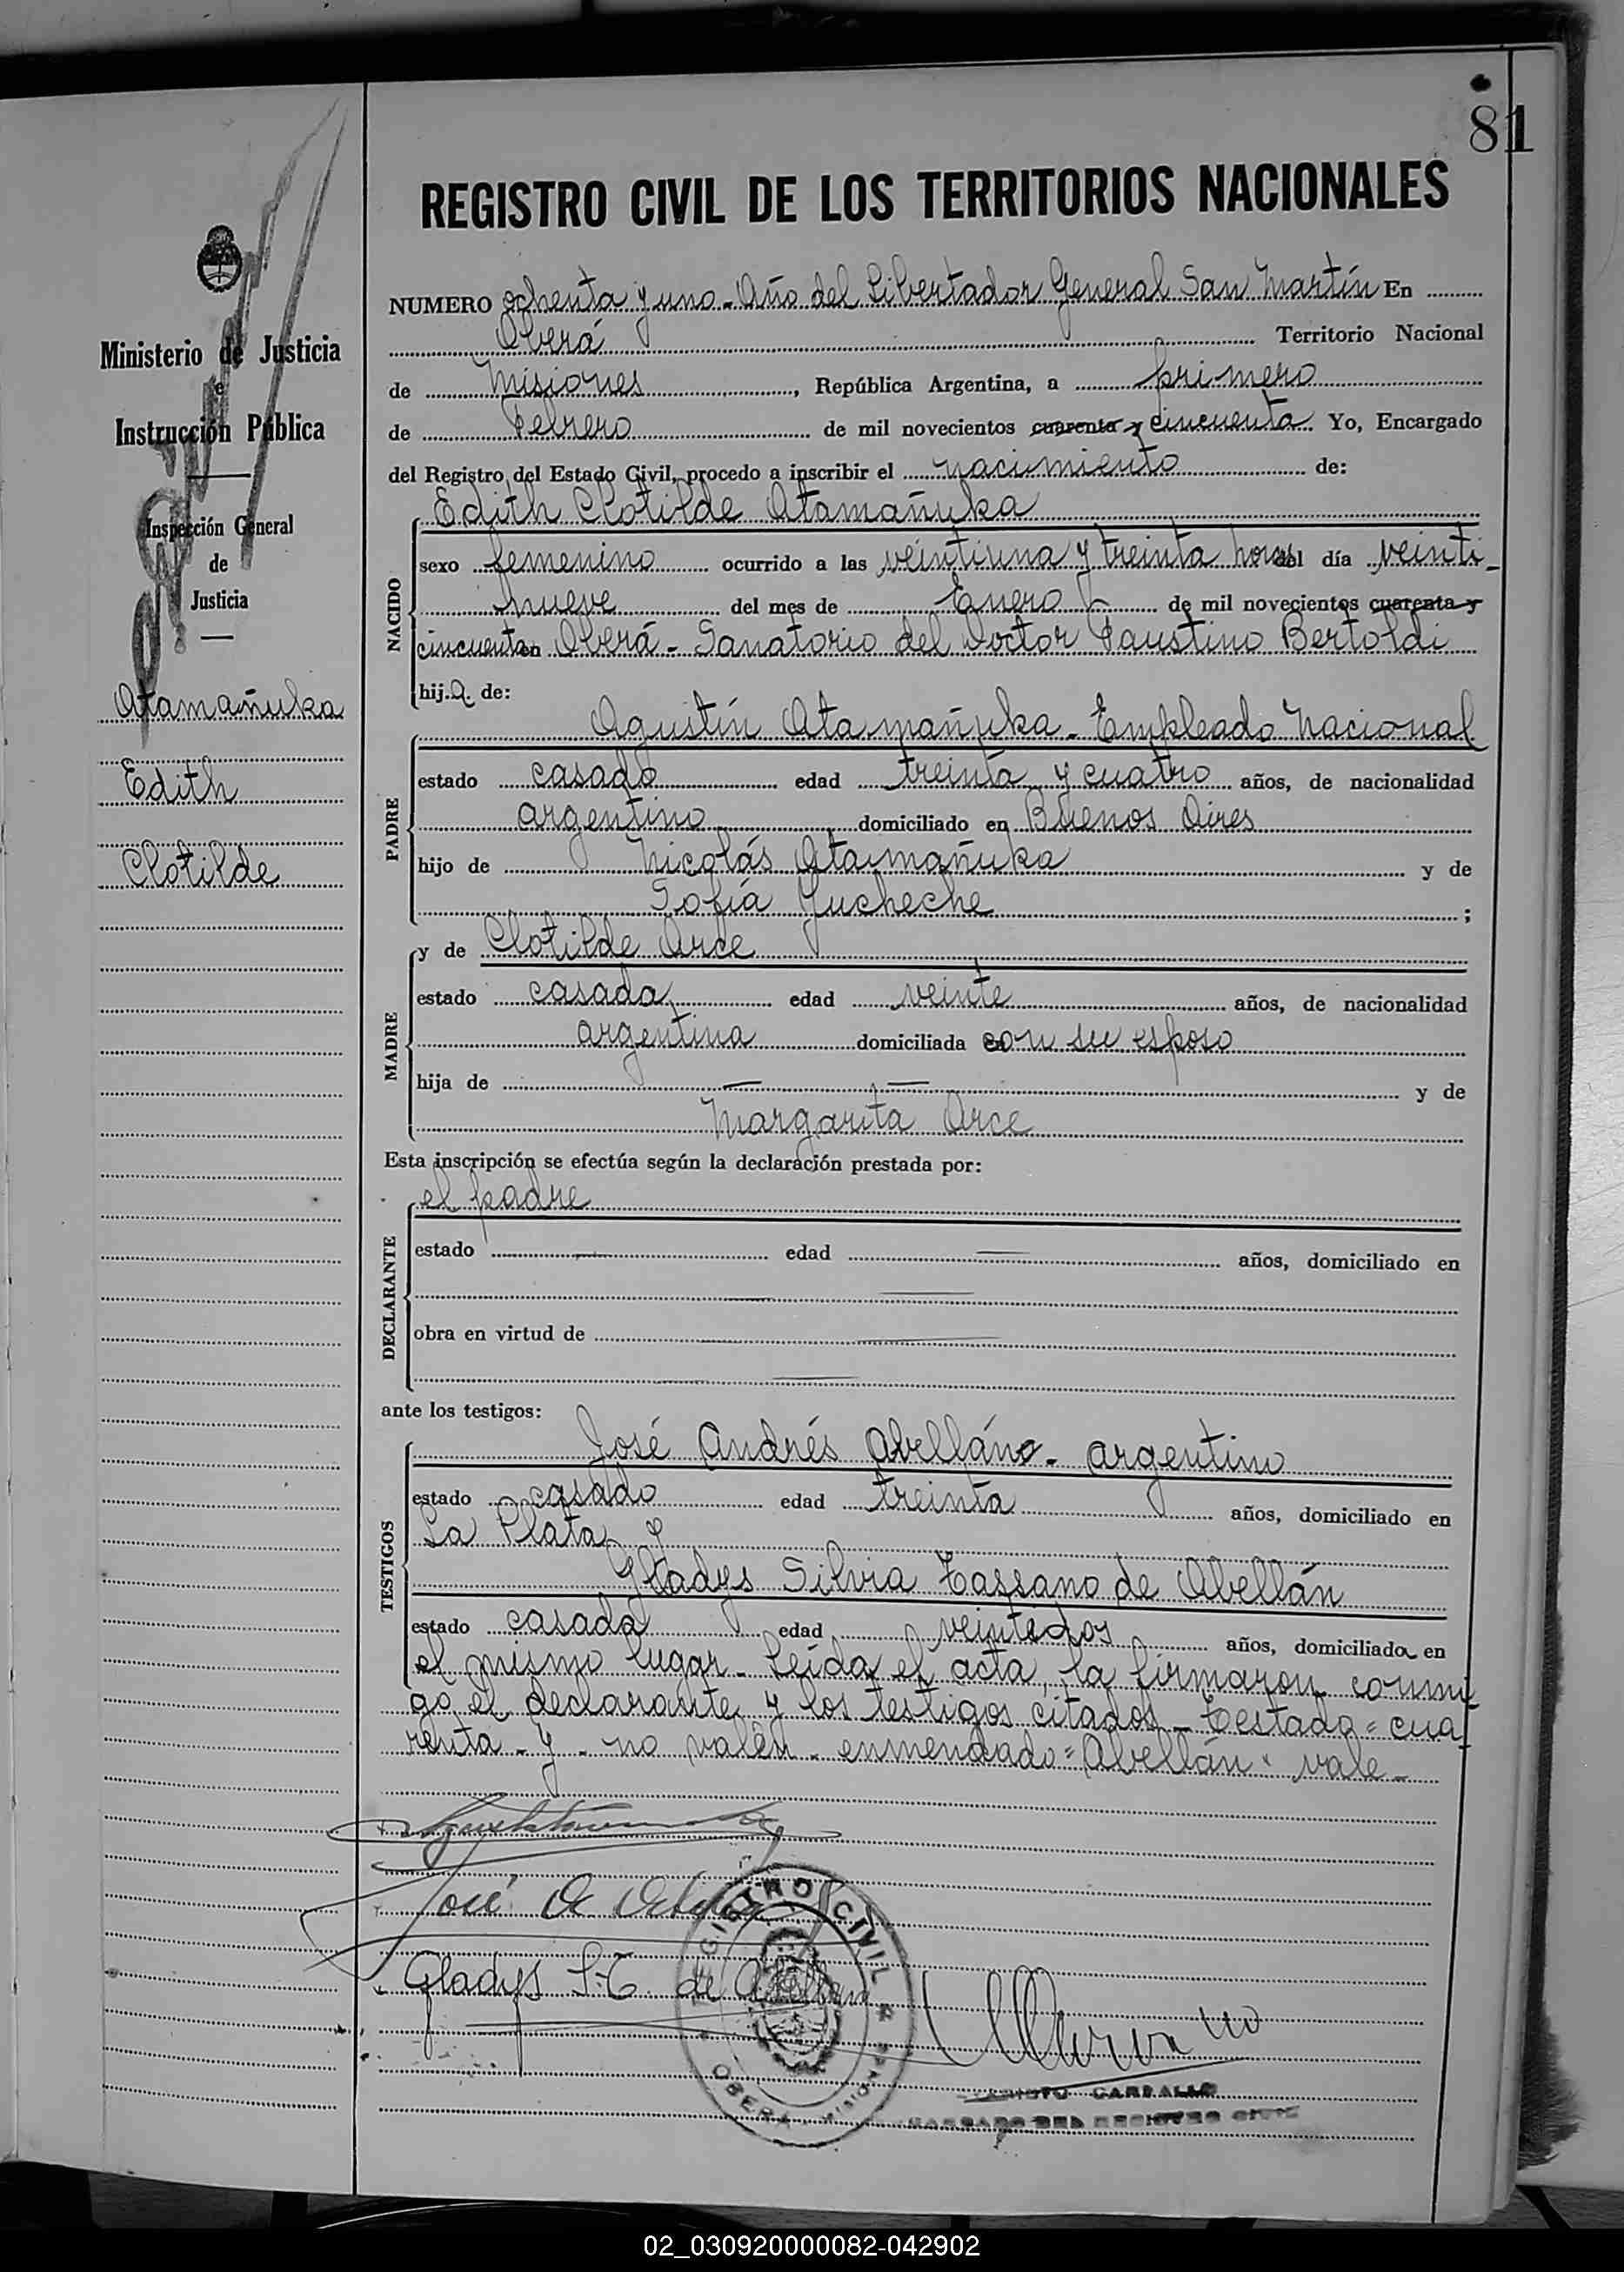 81
REGISTRO CIVIL DE LOS TERRITORIOS NACIONALES
Ministerio de Justicia
e
Instrucción Pública
Inspección General
de
Justicia
Atamañuka
Edith
Clotilde
NUMERO ochenta y uno - Año del Libertador General San Martín En
Oberá Territorio Nacional
de Misiones, República Argentina, a primero
de Febrero de mil novecientos cuarenta y cincuenta. Yo, Encargado
del Registro del Estado Civil, procedo a inscribir el nacimiento de:
NACIDO
Edith Clotilde Atamañuka
sexo femenino ocurrido a las veintiuna y treinta horas del día veinti-
nueve del mes de Enero de mil novecientos cuarenta y
cincuenta en Oberá - Sanatorio del Doctor Faustino Bertoldi
hija de:
PADRE
Agustín Atamañuka - Empleado Nacional
estado casado edad treinta y cuatro años, de nacionalidad
argentino domiciliado en Buenos Aires
hijo de Nicolás Atamañuka y de
Sofía Jucheche ;
MADRE
y de Clotilde Arce
estado casada edad veinte años, de nacionalidad
argentina domiciliada con su esposo
hija de — — y de
Margarita Arce
Esta inscripción se efectúa según la declaración prestada por:
DECLARANTE
el padre
estado — edad — años, domiciliado en
obra en virtud de
ante los testigos:
TESTIGOS
José Andrés Abellán - argentino
estado casado edad treinta años, domiciliado en
La Plata y
Gladys Silvia Tassano de Abellán
estado casada edad veintidos años, domiciliada en
el mismo lugar - Leída el acta, la firmaron conmi
go el declarante y los testigos citados - Testado = cua
renta - y - no valen - enmendado = Abellán = vale -
José A Abellán
Gladys S. T. de Abellán
REGISTRO CIVIL
OBERA MISIONES
CARBALLO
ENCARGADO DEL REGISTRO CIVIL
02_030920000082-042902